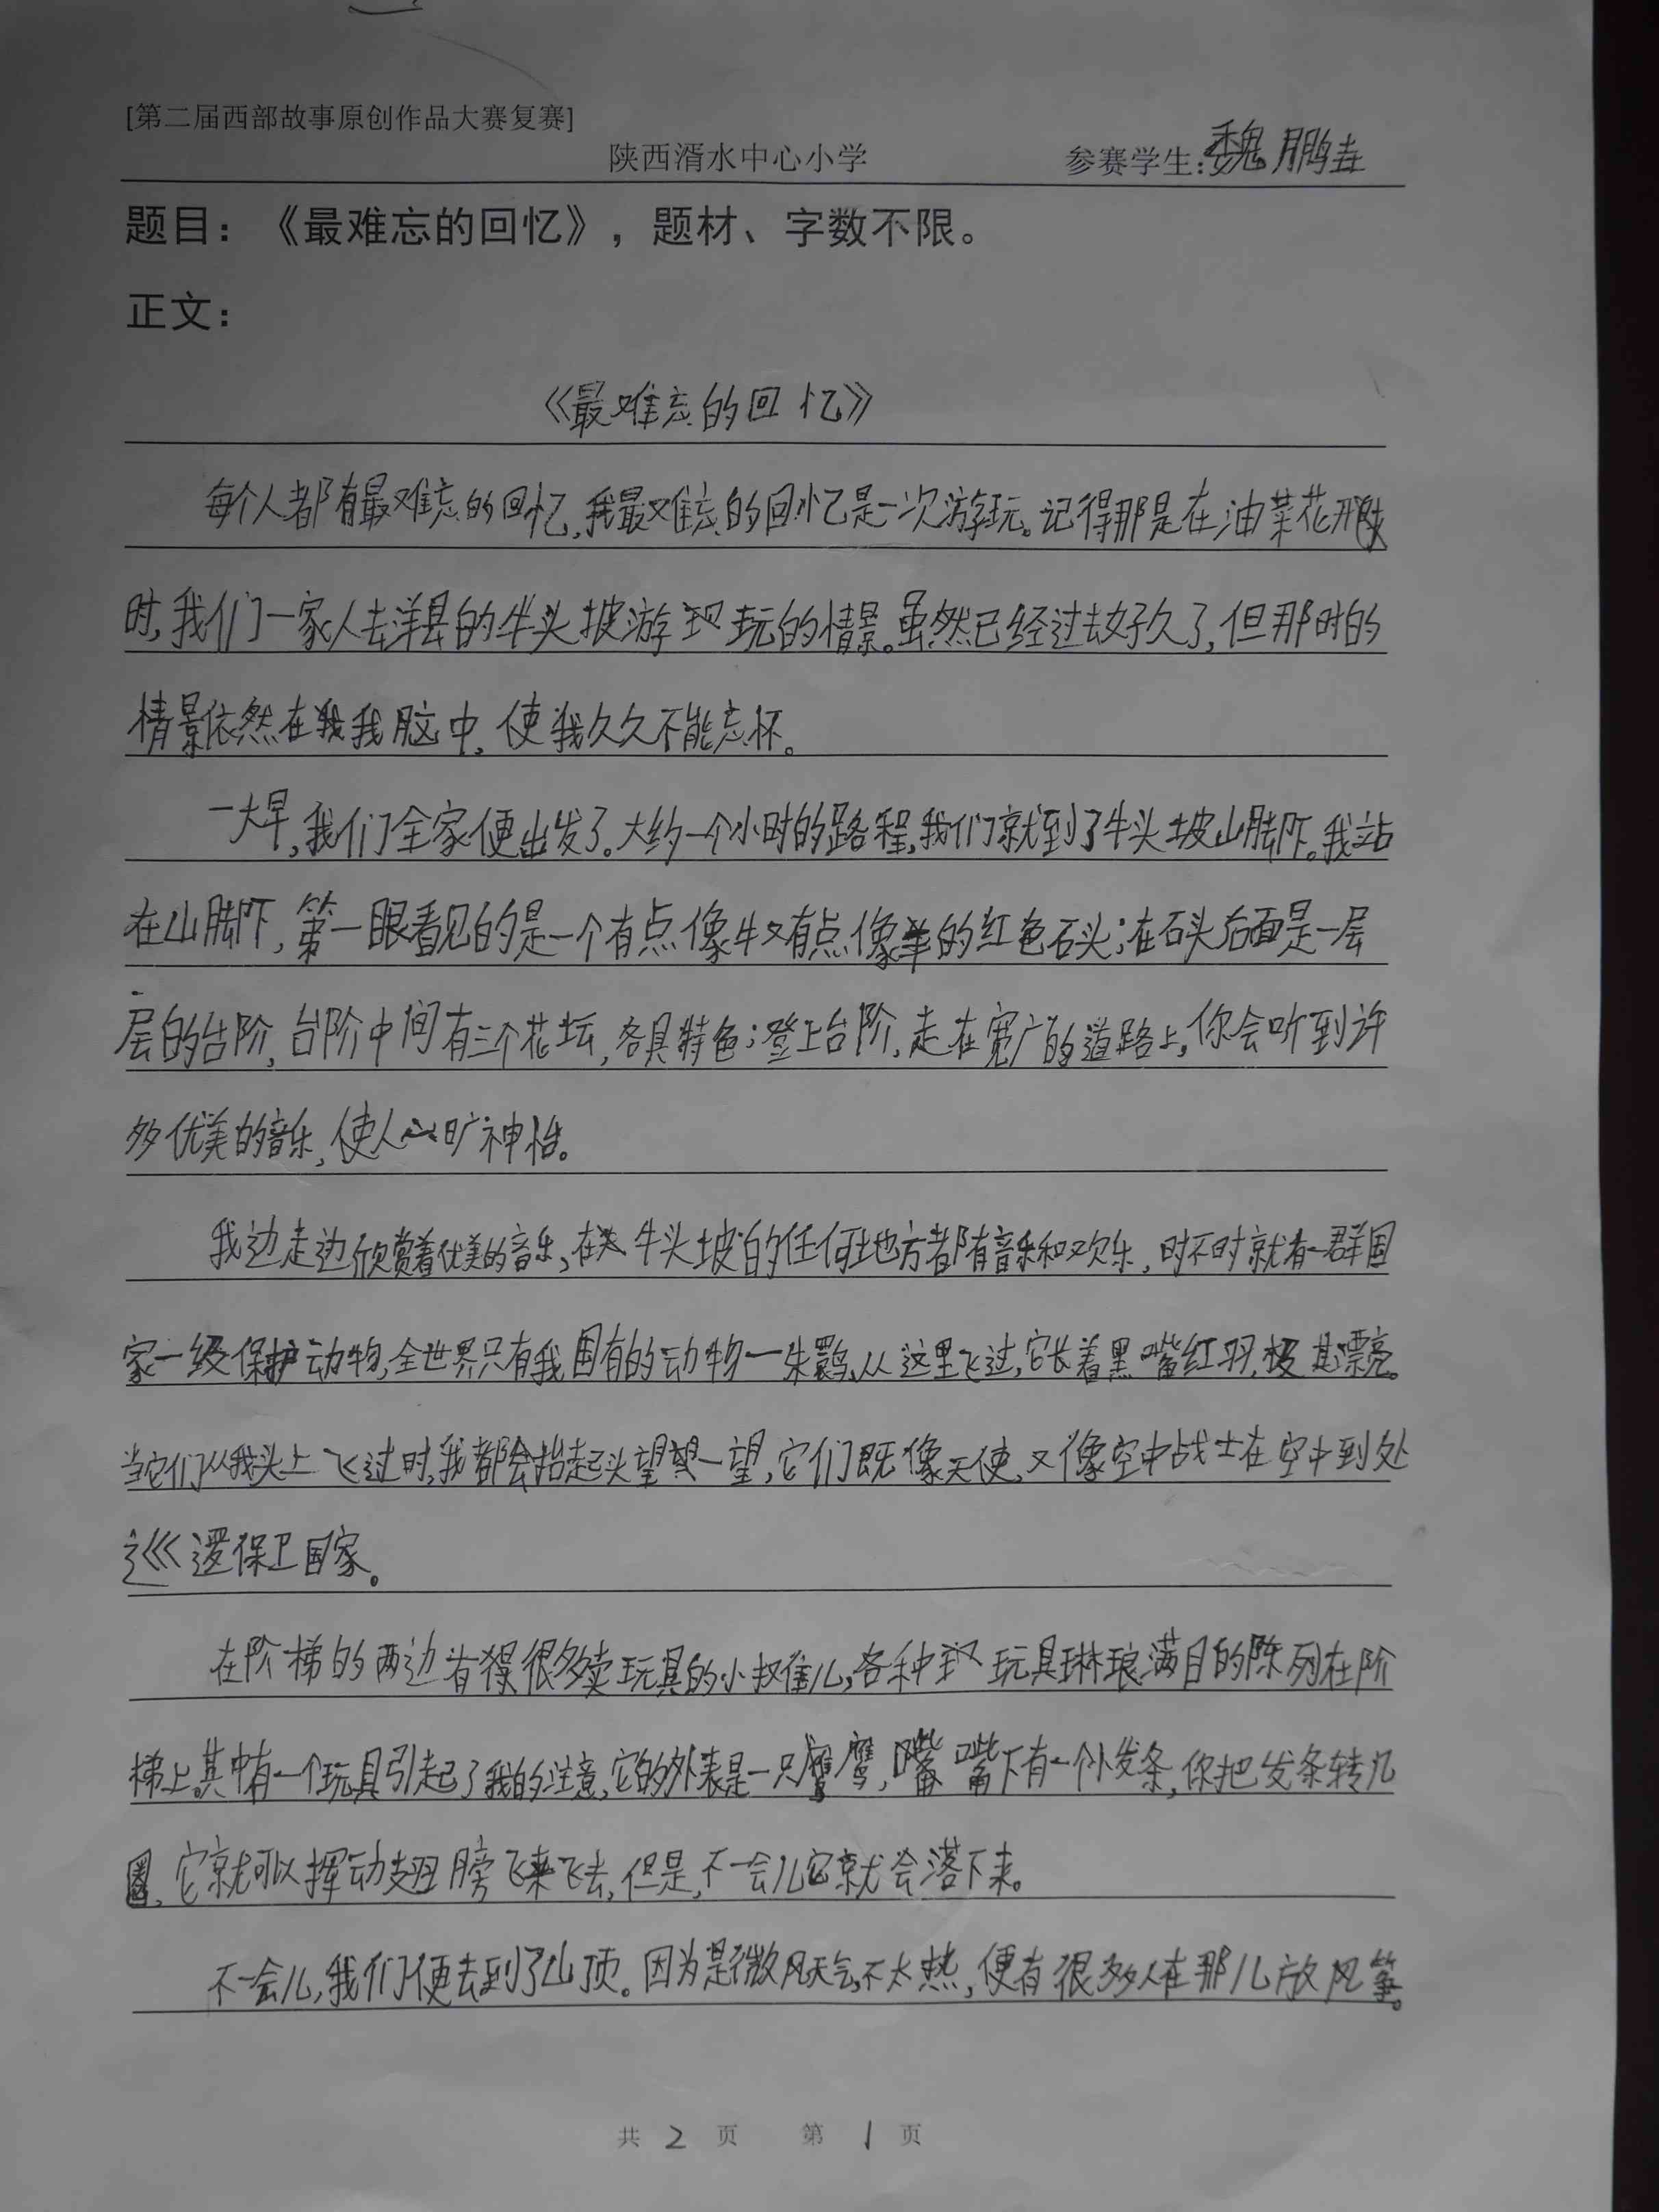 [第二届西部故事原创作品大赛复赛]
陕西湑水中心小学 参赛学生:魏鹏垚
题目：《最难忘的回忆》，题材、字数不限。
正文：
《最难忘的回忆》
每个人都有最难忘的回忆,我最难忘的回忆是一次游玩。记得那是在油菜花开
时,我们一家人去洋县的牛头坡游玩的情景。虽然已经过去好久了,但那时的
情景依然在我脑中,使我久久不能忘怀。
一大早,我们全家便出发了。大约一个小时的路程,我们就到了牛头坡山脚下。我站
在山脚下,第一眼看见的是一个有点像牛又有点像羊的红色石头;在石头后面是一层
层的台阶,台阶中间有三个花坛,各具特色;登上台阶,走在宽广的道路上,你会听到许
多优美的音乐,使人心旷神怡。
我边走边欣赏着优美的音乐,在牛头坡的任何地方都有音乐和欢乐,时不时就有一群国
家一级保护动物,全世界只有我国有的动物一朱鹮,从这里飞过,它长着黑嘴红羽,极其漂亮。
当它们从我头上飞过时,我都会抬起头望一望,它们既像天使,又像空中战士在空中到处
巡逻保卫国家。
在阶梯的两边有很多卖玩具的小摊儿,各种玩具琳琅满目的陈列在阶
梯上。其中有一个玩具引起了我的注意,它的外表是一只鹰,嘴下有一个小发条,你把发条转几
圈,它就可以挥动翅膀飞来飞去,但是,不一会儿它就会落下来。
不一会儿,我们便去到了山顶。因为是微风天气,不太热,便有很多人在那儿放风筝。
共 2 页 第 1 页